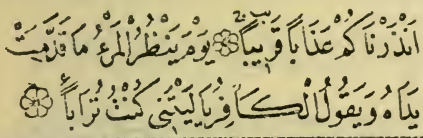 اَنْذَرْنَاكُمْ عَذَابًا قَرِيبًا يَوْمَ يَنْظُرُ الْمَرْءُ مَا قَدَّمَتْ
يَدَاهُ وَيَقُولُ الْكَافِرُ يَا لَيْتَنِي كُنْتُ تُرَابًا